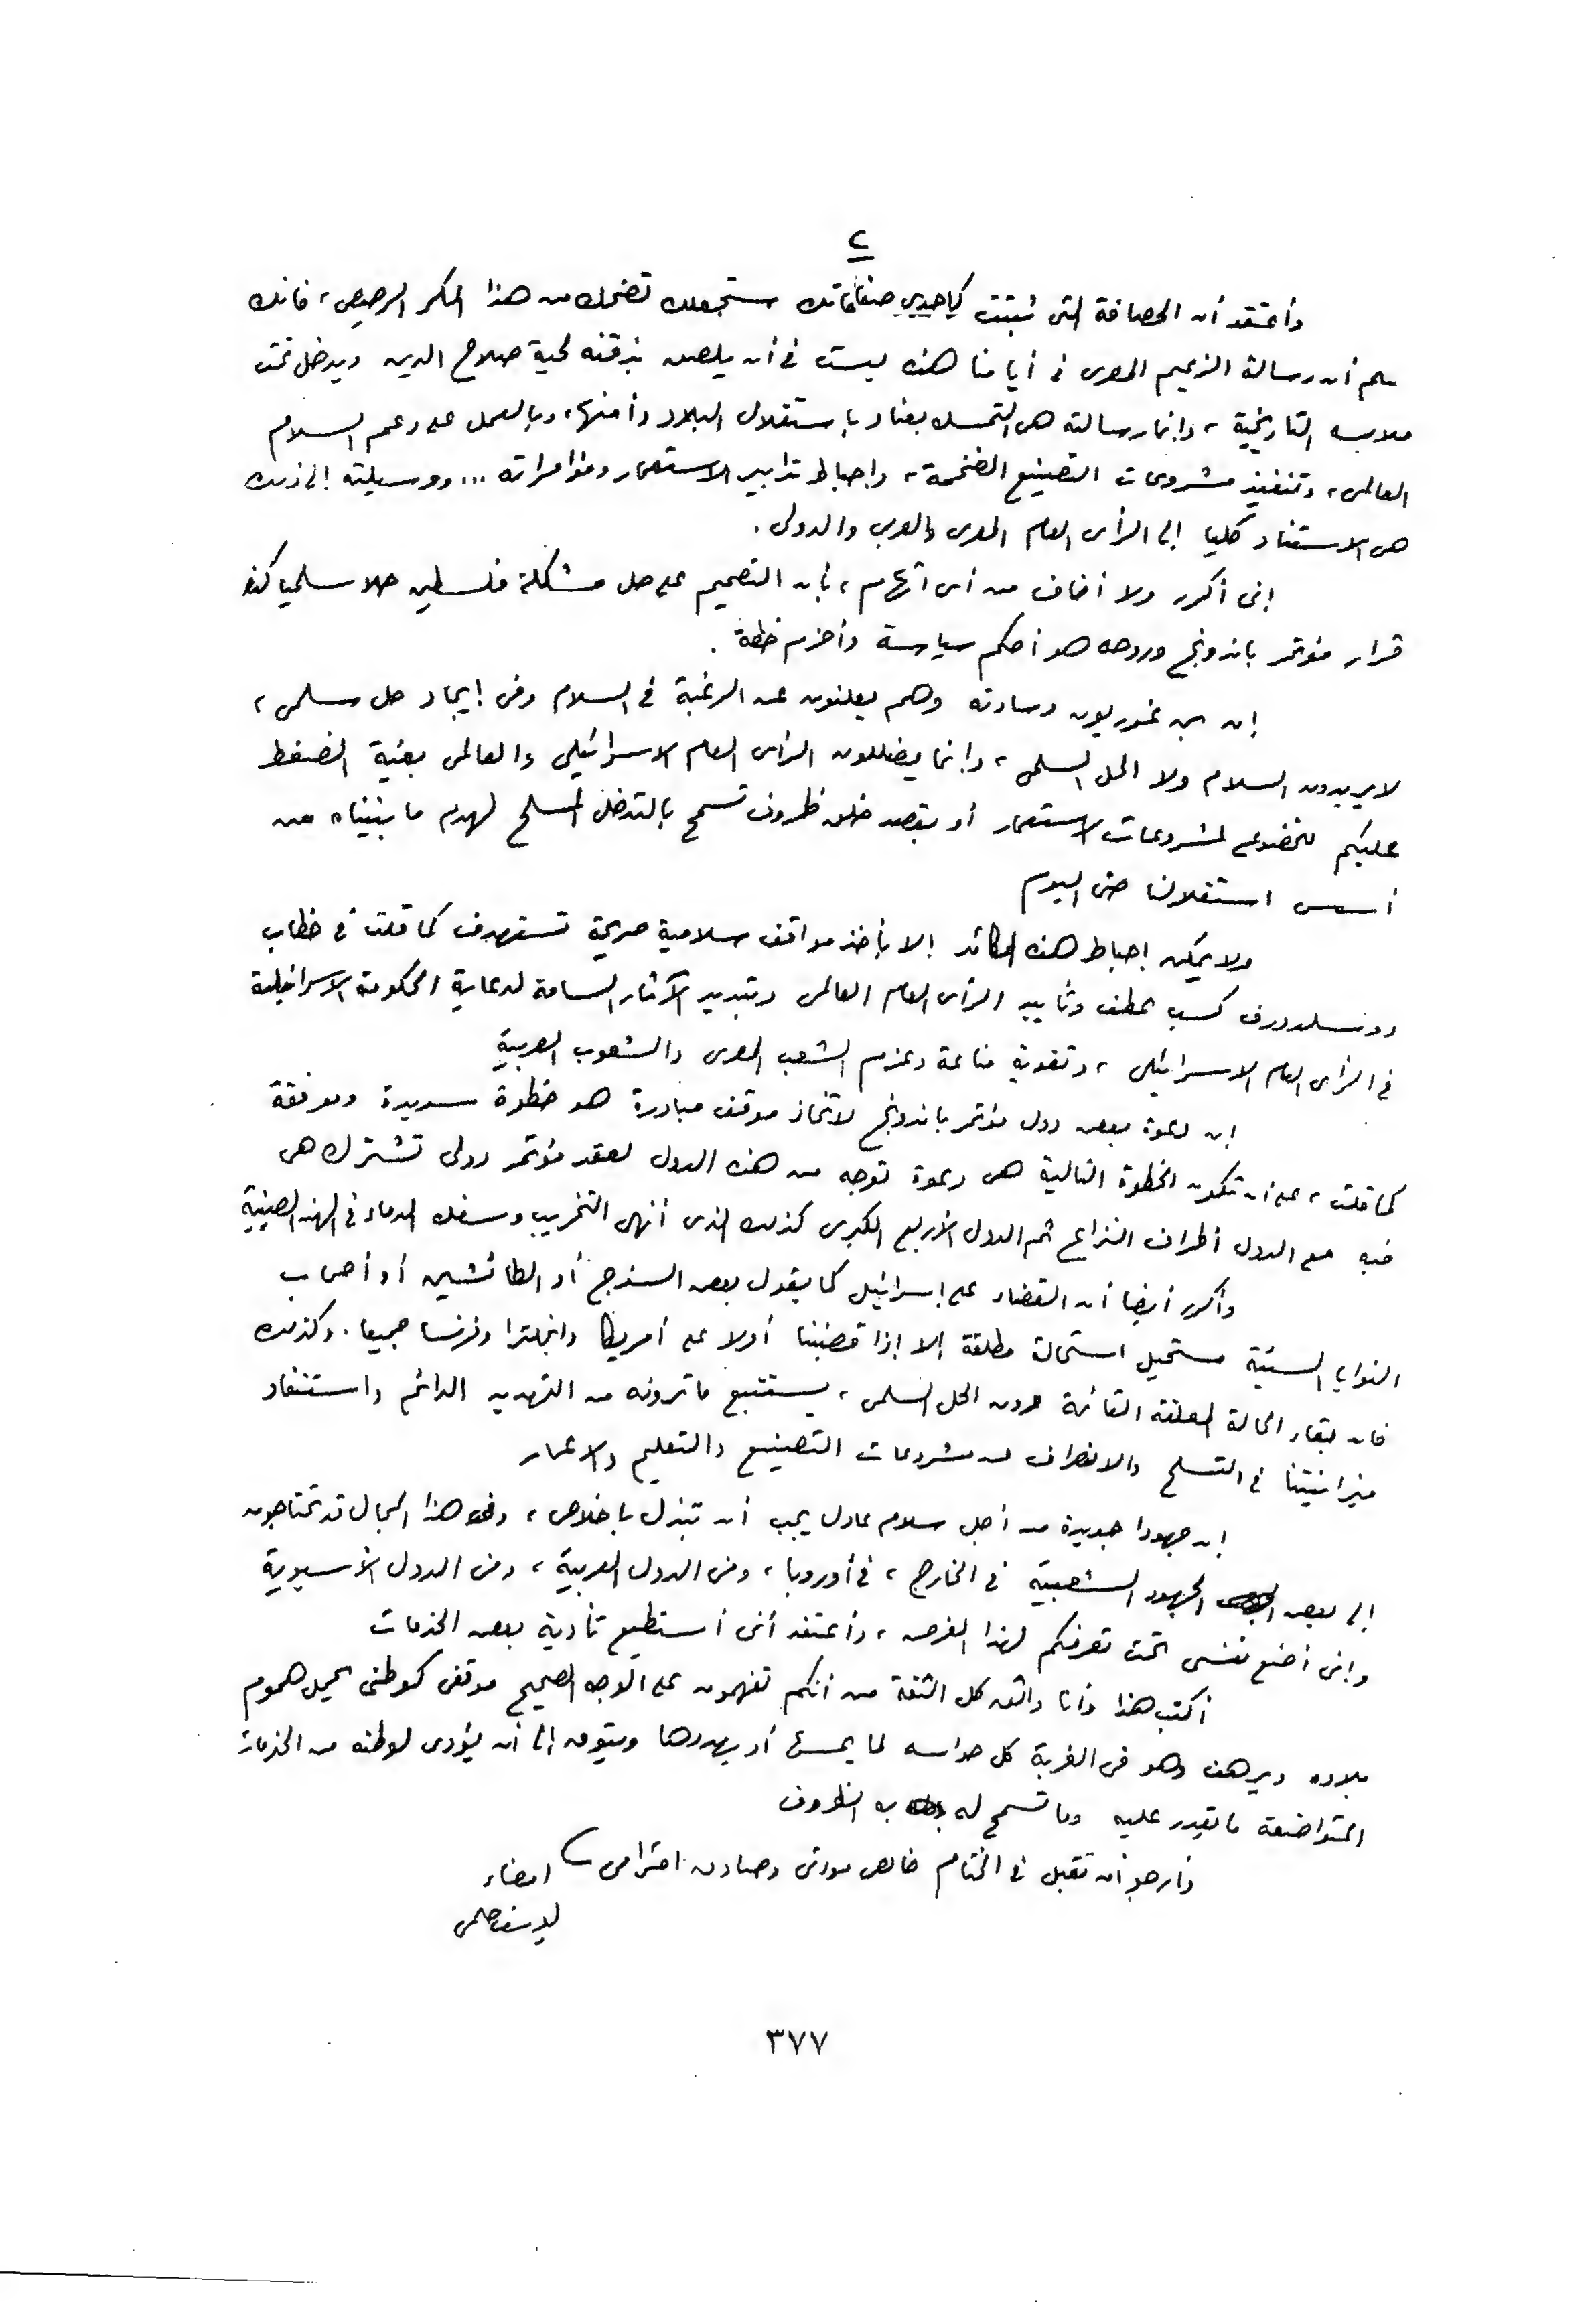 ٢
وأعتقد أن الحصافة التى ثبتت كإحدى صفاتك ستجعلك تضحك من هذا المكر الرخيص، فانك
تعلم أن رسالة الزعيم المصرى فى أيامنا هذه ليست فى أن يلصق بذقنه لحية صلاح الدين ويدخل تحت
ملابسه التاريخية، وانما رسالته هى التمسك بعناد باستقلال البلاد وأمنها، وبالعمل على دعم السلام
العالمى، وتنفيذ مشروعات التصنيع الضخمة، واحباط تدابير الاستعمار ومؤامراته ... ووسيلته إلى ذلك
هى الاستناد كليا إلى الرأى العام المصرى والعربى والدولى.
إنى أكرر ولا أخاف من أى اتهام، بأن التصميم على حل مشكلة فلسطين حلا سلميا كنحو
قرار مؤتمر باندونج وروحه هو أحكم سياسة وأحزم خطة.
إن بن غوريون وسادته وهم يعلنون عن الرغبة فى السلام وفى إيجاد حل سلمى،
لا يريدون السلام ولا الحل السلمى، وانما يضللون الرأى العام الاسرائيلى والعالمى بغية الضغط
عليكم للخضوع لمشروعات الاستعمار أو بقصد خلق ظروف تسمح بالتدخل المسلح لهدم ما بنيناه من
أسس استقلالنا حتى اليوم
ولا يمكن إحباط هذه المكائد إلا بأخذ مواقف سلامية صريحة تستهدف كما قلت فى خطاب
دوسلدورف كسب عطف وتأييد الرأى العام العالمى وتبديد الآثار السامة لدعاية الحكومة الاسرائيلية
فى الرأى العام الاسرائيلى، وتقوية مناعة وعزم الشعب المصرى والشعوب العربية
إن دعوة بعض دول مؤتمر باندونج لاتخاذ موقف مبادرة هو خطوة سديدة وموفقة
كما قلت، على أن تكون الخطوة التالية هى دعوة توجه من هذه الدول لعقد مؤتمر دولى تشترك هى
فيه مع الدول أطراف النزاع ثم الدول الأربع الكبرى كذلك الذى أنهى التخريب وسفك الدماء فى الهند الصينية
وأكرر أيضا أن القضاء على إسرائيل كما يقول بعض السذج أو الطائشين أو أصحاب
النوايا السيئة مستحيل استحالة مطلقة إلا إذا قضينا أولا على أمريكا وانجلترا وفرنسا جميعا. وكذلك
فان بقاء الحالة المعلقة القائمة دون الحل السلمى، يستتبع ما ترونه من التهديد الدائم واستنفاد
ميزانيتنا فى التسلح والانصراف عن مشروعات التصنيع والتعليم والاعمار
إن جهودا جديدة من أجل سلام عادل يجب أن تبذل باخلاص، وفى هذا المجال قد تحتاجون
إلى بعض الجهود الشعبية فى الخارج، فى أوروبا، وفى الدول العربية، وفى الدول الأسيوية
وإنى أضع نفسى تحت تصرفكم لهذا الغرض، وأعتقد أنى أستطيع تأدية بعض الخدمات
أكتب هذا وأنا واثق كل الثقة من أنكم تفهمون على الوجه الصحيح موقفى كوطنى يحمل هموم
بلاده ويرهف وهو فى الغربة كل حواسه لما يمسها أو يهددها ويتوق إلى أن يؤدى لوطنه من الخدمات
المتواضعة ما يقدر عليه وما تسمح له به الظروف
وأرجو أن تقبل فى الختام خالص مودتى وصادق احترامى امضاء
يوسف حلمى
٣٧٧